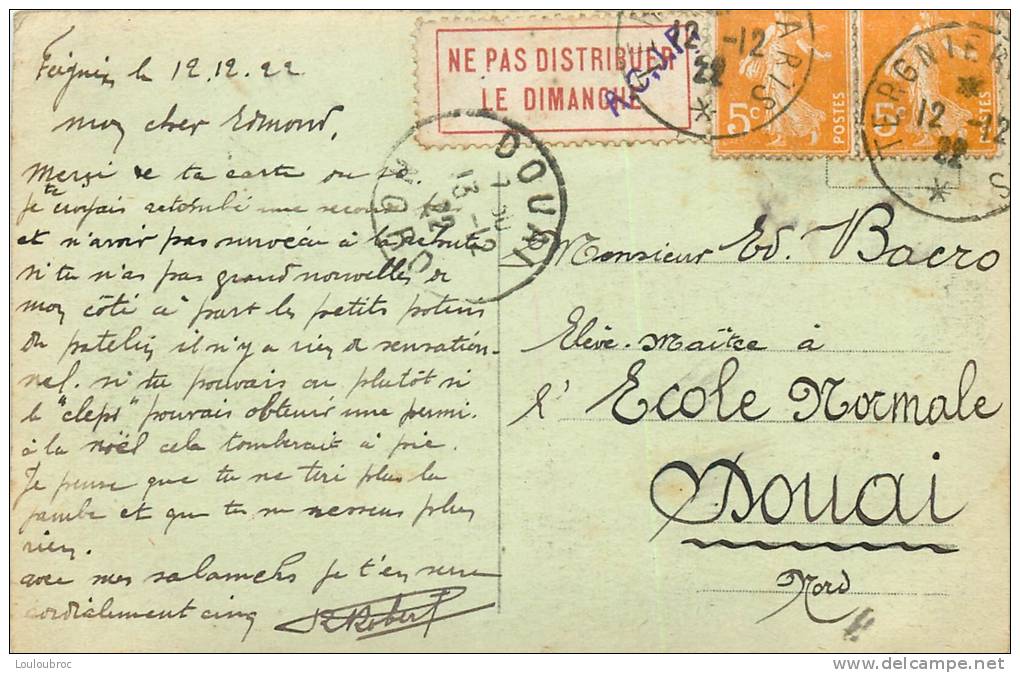 Feignies le 12.12.22
Mon cher Edmond,
Merci de ta carte
Je croyais
et n'avoir pas
si tu n'as pas grand nouvelles de
mon côté à part les petits potins
du patelin il n'y a rien de sensation-
nel. si tu pouvais ou plutôt si
le "cleps" pouvais obtenir une permi.
à la noël cela tomberait à pic.
Je pense que tu ne tire plus la
jambe et que tu ne ressens plus
rien.
avec mes salamelis je t'en serre
cordialement cinq
Robert
NE PAS DISTRIBUER
LE DIMANCHE
DOUAI
NORD
13 -12
22
12 -12
22
ARIS
5c
POSTES
5c
POSTES
TERGNIER
12 -12
22
Monsieur Ed. Bacro
Elève-Maître à
l' Ecole Normale
Douai
Nord
Louloubroc
delcampe.net